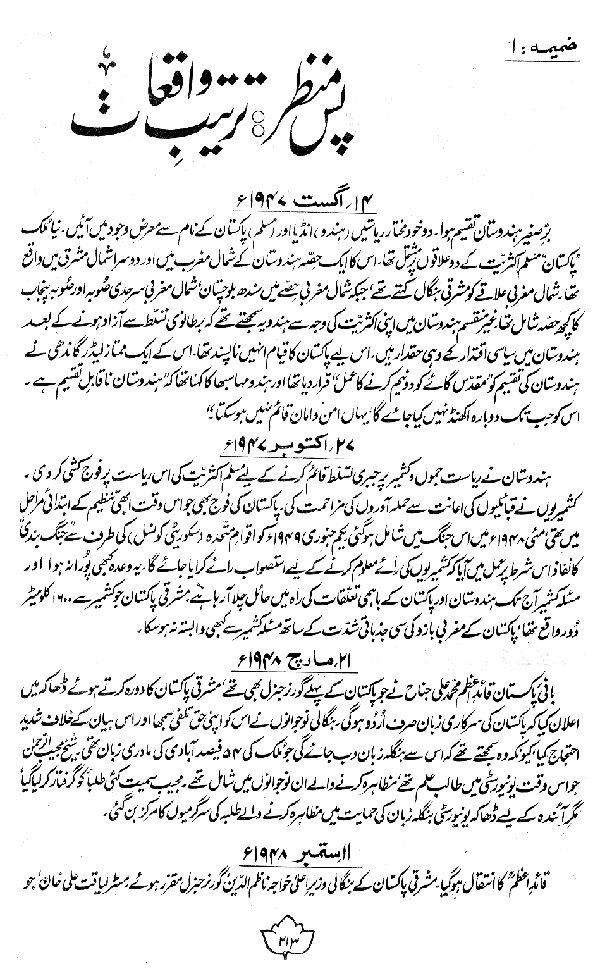 ضمیمہ : ۱
پس منظر : ترتیبِ واقعات
۱۴؍ اگست ۱۹۴۷ء
برِّصغیر ہندوستان تقسیم ہوا۔ دو خود مختار ریاستیں (ہندو) انڈیا اور (مسلم) پاکستان کے نام سے معرضِ وجود میں آئیں۔ نیا ملک
پاکستان مسلم اکثریت کے دو علاقوں پر مشتمل تھا۔ اس کا ایک حصّہ ہندوستان کے شمال مغرب میں اور دوسرا شمال مشرق میں واقع
تھا۔ شمال مغربی علاقے کو مشرقی بنگال کہتے تھے، جبکہ شمال مغربی حصّے میں سندھ، بلوچستان، شمال مغربی سرحدی صوبہ اور صوبہ پنجاب
کا کچھ حصّہ شامل تھا۔ غیر منقسم ہندوستان میں اپنی اکثریت کی وجہ سے ہندو یہ سمجھتے تھے کہ برطانوی تسلّط سے آزاد ہونے کے بعد
ہندوستان میں سیاسی اقتدار کے وہی حقدار ہیں۔ اس لیے پاکستان کا قیام انہیں ناپسند تھا۔ اس کے ایک ممتاز لیڈر گاندھی نے
ہندوستان کی تقسیم کو "مقدّس گائے کو دو نیم کرنے کا عمل" قرار دیا تھا اور ہندو مہاسبھا کا کہنا تھا کہ "ہندوستان ناقابلِ تقسیم ہے۔
اس کو جب تک دوبارہ اکھنڈ نہیں کیا جائے گا، یہاں امن و امان قائم نہیں ہو سکتا۔"
۲۷؍ اکتوبر ۱۹۴۷ء
ہندوستان نے ریاست جموں و کشمیر پر جبری تسلّط قائم کرنے کے لیے مسلم اکثریت کی اس ریاست پر فوج کشی کر دی۔
کشمیریوں نے قبائلیوں کی اعانت سے حملہ آوروں کی مزاحمت کی۔ پاکستان کی فوج بھی جو اس وقت ابھی تنظیم کے ابتدائی مراحل
میں تھی، مئی ۱۹۴۸ء میں اس جنگ میں شامل ہو گئی۔ یکم جنوری ۱۹۴۹ء کو اقوامِ متحدہ (سکیورٹی کونسل) کی طرف سے "جنگ بندی"
کا نفاذ اس شرط پر عمل میں آیا کہ کشمیریوں کی رائے معلوم کرنے کے لیے استصواب رائے کرایا جائے گا۔ یہ وعدہ کبھی پورا نہ ہوا اور
مسئلہ کشمیر آج تک ہندوستان اور پاکستان کے باہمی تعلقات کی راہ میں حائل چلا آ رہا ہے۔ مشرقی پاکستان جو کشمیر سے ۱۶۰۰ کلومیٹر
دور واقع تھا، پاکستان کے مغربی بازو کی سی جذباتی شدّت کے ساتھ مسئلہ کشمیر سے کبھی وابستہ نہ ہو سکا۔
۲۱؍ مارچ ۱۹۴۸ء
بانیِ پاکستان قائدِ اعظم محمد علی جناح نے جو پاکستان کے پہلے گورنر جنرل بھی تھے، مشرقی پاکستان کا دورہ کرتے ہوئے ڈھاکہ میں
اعلان کیا کہ پاکستان کی سرکاری زبان صرف اُردو ہو گی۔ بنگالی نوجوانوں نے اس کو اپنی حق تلفی سمجھا اور اس بیان کے خلاف شدید
احتجاج کیا، کیونکہ وہ سمجھتے تھے کہ اس سے بنگلہ زبان دب جائے گی جو ملک کی ۵۴ فیصد آبادی کی مادری زبان تھی۔ شیخ مجیب الرحمٰن
جو اس وقت یونیورسٹی میں طالب علم تھے، مظاہرہ کرنے والے ان نوجوانوں میں شامل تھے۔ مجیب سمیت کئی طلبا کو گرفتار کر لیا گیا
مگر آئندہ کے لیے ڈھاکہ یونیورسٹی بنگلہ زبان کی حمایت میں مظاہرہ کرنے والے طلبہ کی سرگرمیوں کا مرکز بن گئی۔
۱۱ ستمبر ۱۹۴۸ء
قائدِ اعظمؒ کا انتقال ہو گیا۔ مشرقی پاکستان کے بنگالی وزیرِ اعلیٰ خواجہ ناظم الدین گورنر جنرل مقرر ہوئے۔ مسٹر لیاقت علی خان، جو
۲۱۳